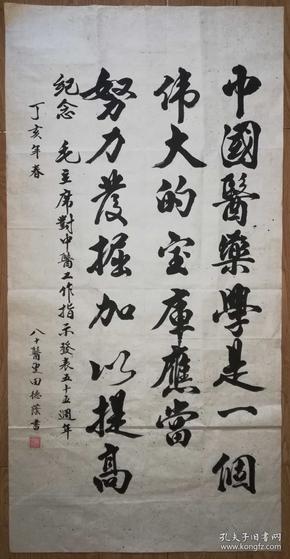 中國醫藥學是一個
伟大的宝庫應當
努力發掘加以提高
紀念 毛主席對中醫工作指示發表五十五週年
丁亥年春
八十醫叟田德蔭書
孔夫子旧书网